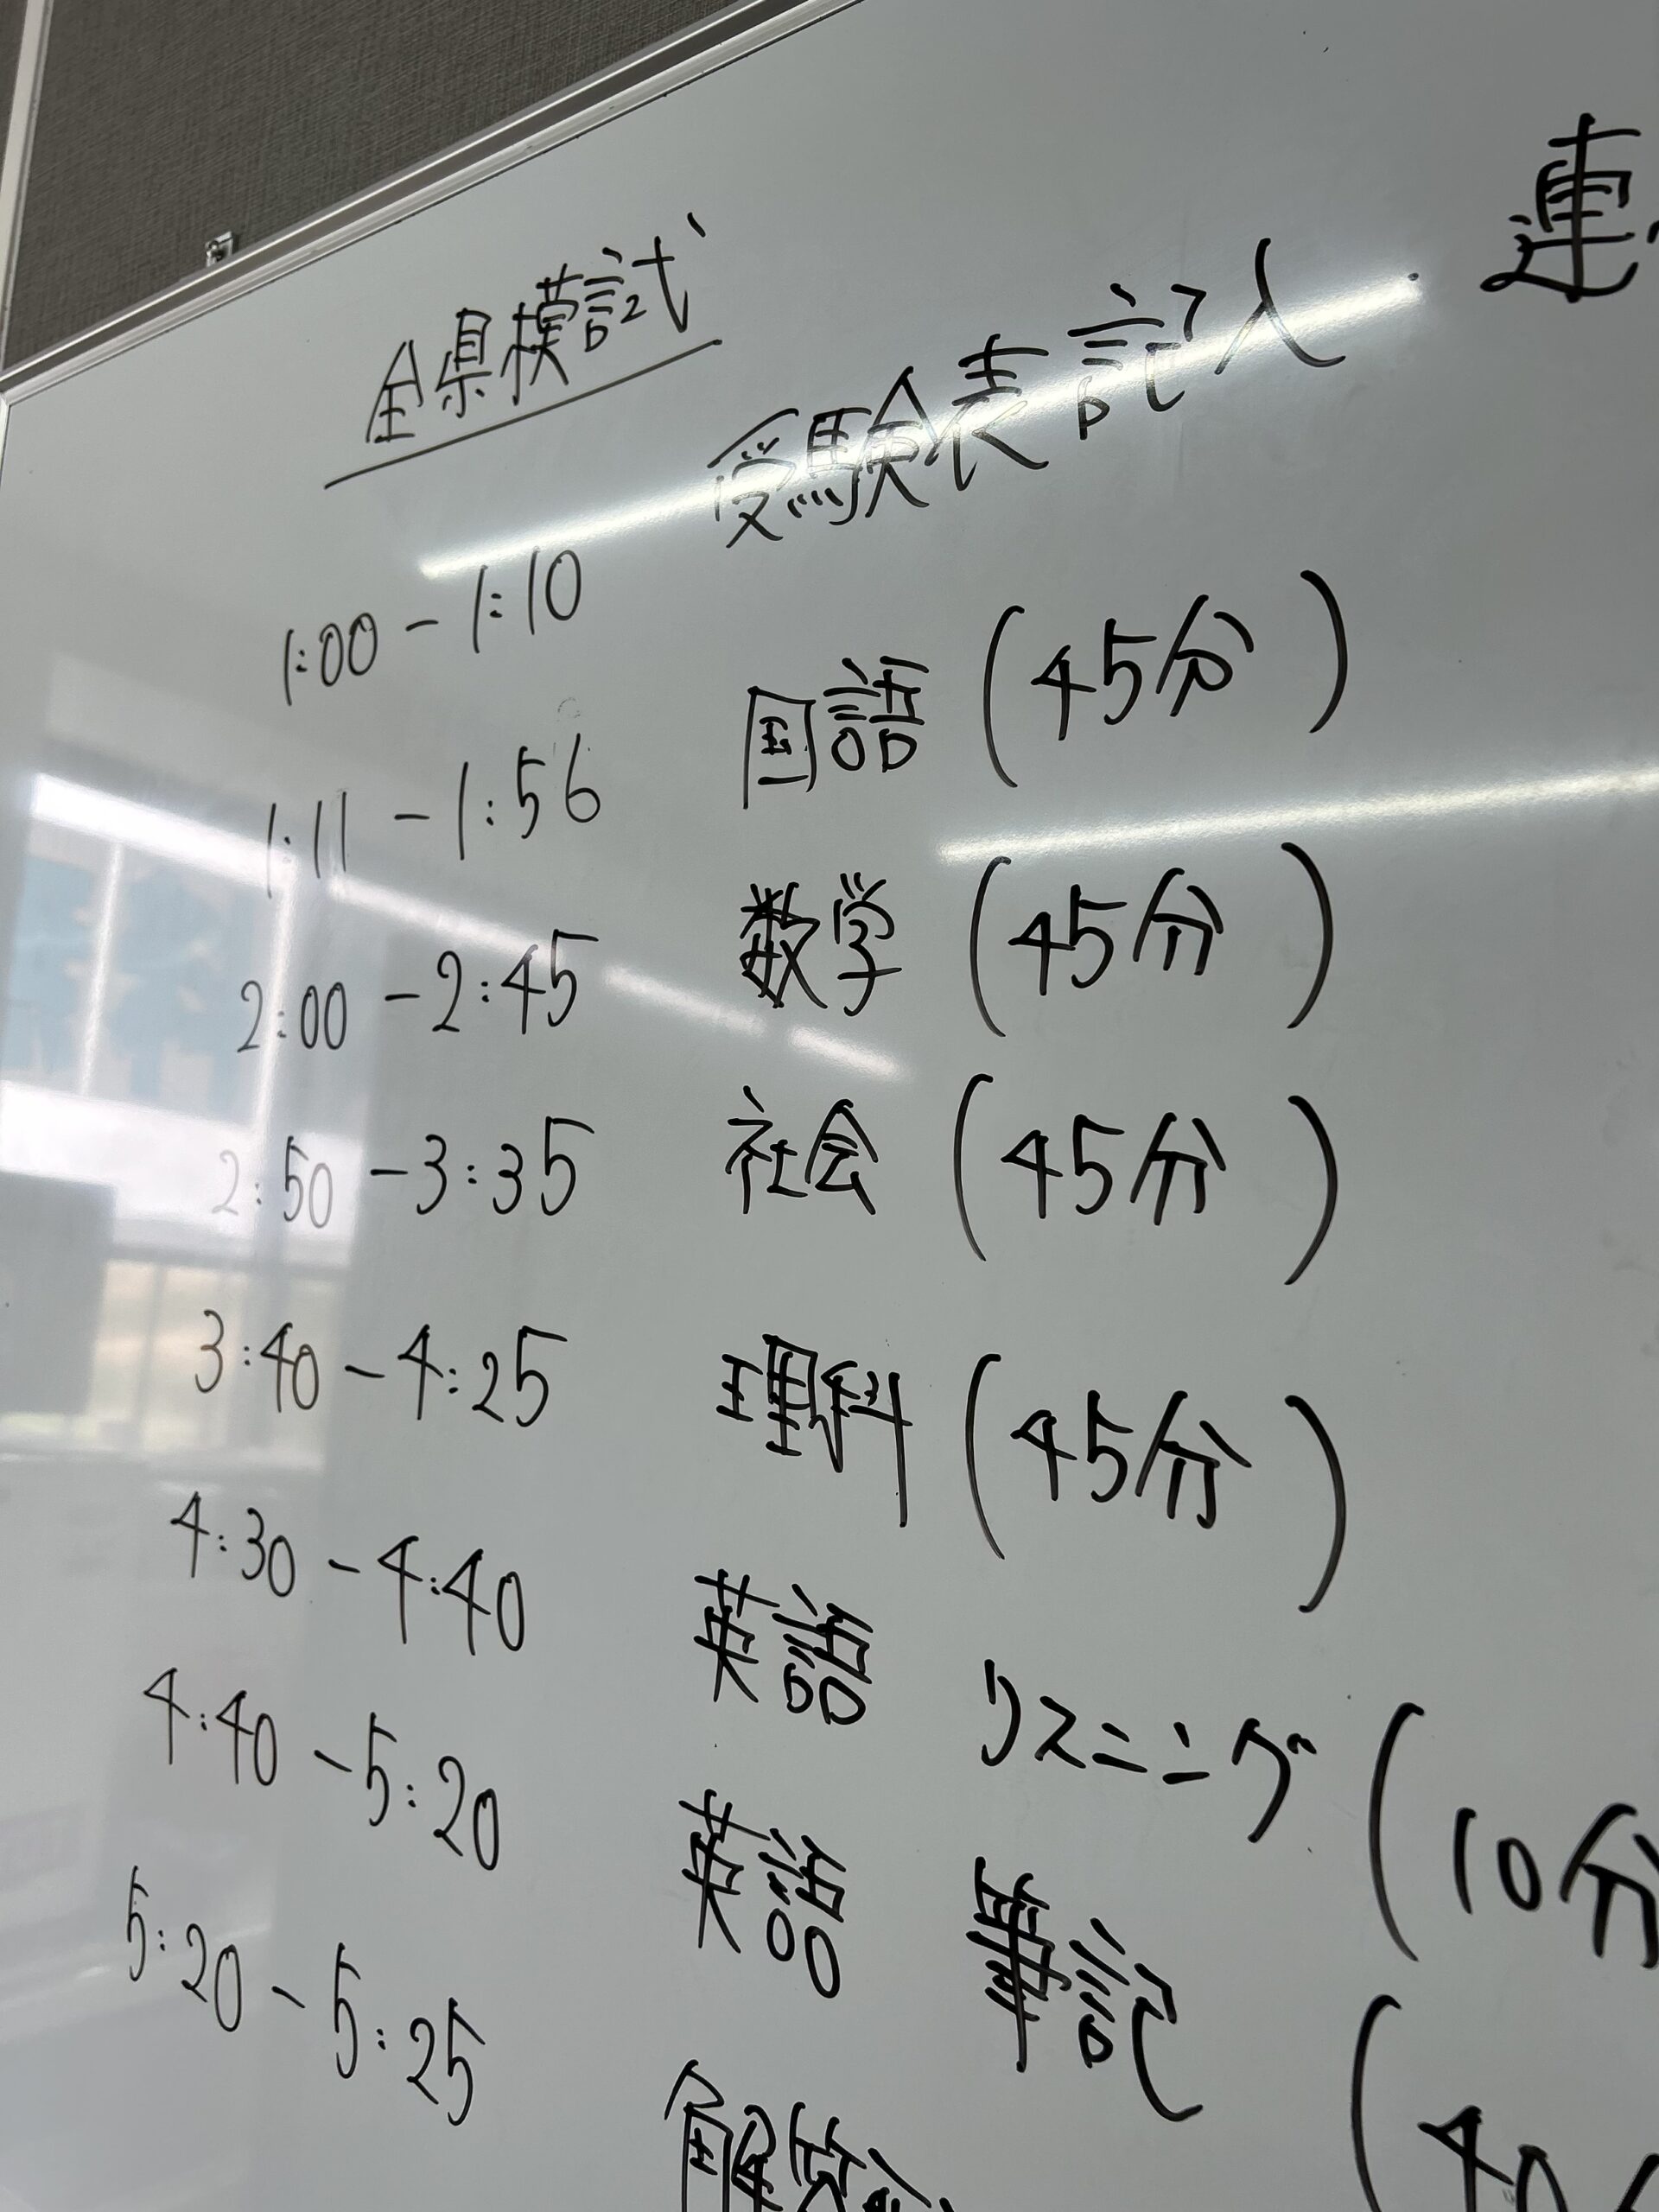 全県模試
1:00 - 1:10 受験表記入 連
1:11 - 1:56 国語 (45分)
2:00 - 2:45 数学 (45分)
2:50 - 3:35 社会 (45分)
3:40 - 4:25 理科 (45分)
4:30 - 4:40 英語 リスニング (10分
4:40 - 5:20 英語 筆記 (40
5:20 - 5:25 解答